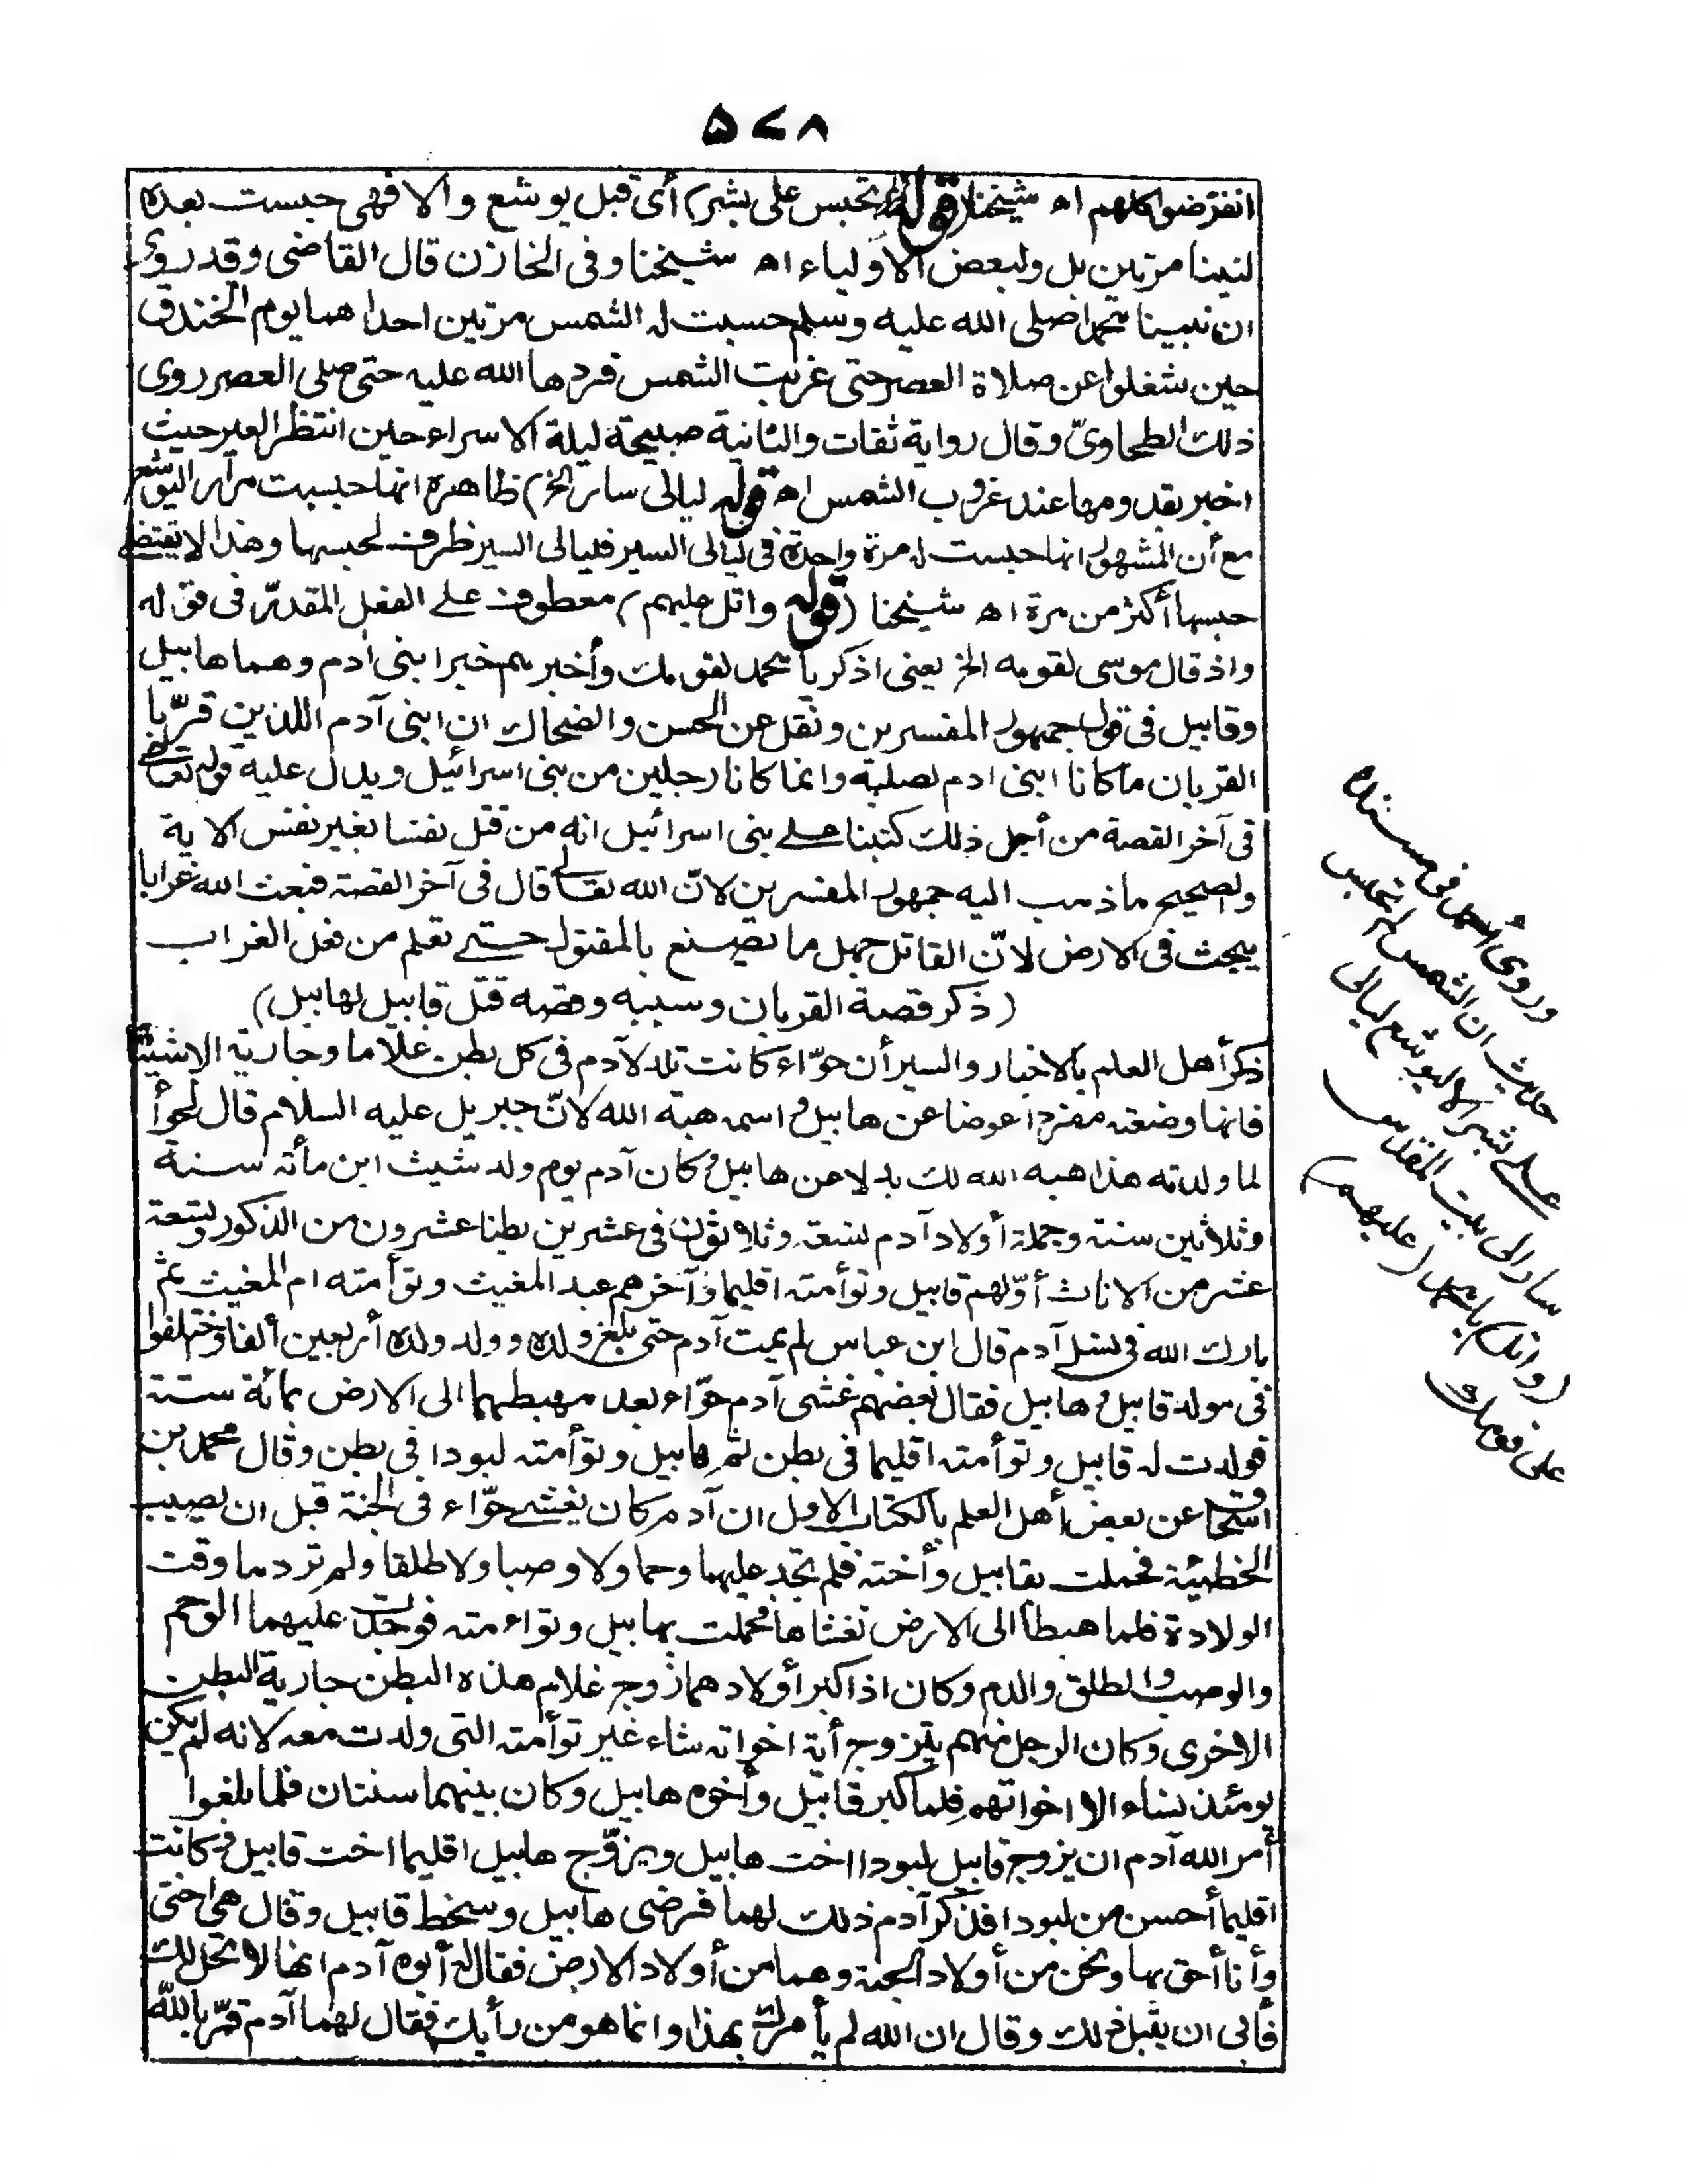 ٥٧٨
انقرضوا كلهم اه شيخنا (قوله لم تحبس على بشر) أى قبل يوشع والا فهى حبست بعده
لنبينا مرتين بل ولبعض الاولياء اه شيخنا وفى الخازن قال القاضى وقد روى
ان نبينا محمدا صلى الله عليه وسلم حبست له الشمس مرتين احداهما يوم الخندق
حين شغلوا عن صلاة العصر حتى غربت الشمس فردها الله عليه حتى صلى العصر روى
ذلك الطحاوىّ وقال رواية ثقات والثانية صبيحة ليلة الاسراء حين انتظر العير حيث
اخبر بقدومها عند غروب الشمس اه قوله ليالى سار الخ) ظاهره انها حبست مرارا ليوشع
مع أن المشهور انها حبست له مرة واحدة فى ليالى السير فليالى السير ظرف لحبسها وهذا لا يقتضى
حبسها أكثر من مرة اه شيخنا (قوله واتل عليهم) معطوف على الفعل المقدّر فى قوله
واذ قال موسى لقومه الخ يعنى اذكر يا محمد لقومك وأخبرهم خبر ابنى ادم وهما هابيل
وقابيل فى قول جمهور المفسرين ونقل عن الحسن والضحاك ان ابنى آدم اللذين قرّبا
القربان ما كانا ابنى ادم لصلبه وانما كانا رجلين من بنى اسرائيل ويدل عليه قوله تعالى
فى آخر القصة من أجل ذلك كتبنا على بنى اسرائيل انه من قتل نفسا بغير نفس الاية
والصحيح ما ذهب اليه جمهور المفسرين لانّ الله تعالى قال فى آخر القصة فبعث الله غرابا
يبحث فى الارض لانّ القاتل جهل ما يصنع بالمقتول حتى تعلم من فعل الغراب
(ذكر قصة القربان وسببه وقصه قتل قابيل لهابيل)
ذكر أهل العلم بالاخبار والسير أن حوّاء كانت تلد لآدم فى كل بطن غلاما وجارية الا شيثا
فانها وضعته مفردا عوضا عن هابيل واسمه هبة الله لانّ جبريل عليه السلام قال لحوأ
لما ولدته هذا هبه الله لك بدلا عن هابيل وكان آدم يوم ولد شيث ابن مأته سنة
وثلاثين سنة وجملة أولاد آدم تسعة وثلاثون فى عشرين بطنا عشرون من الذكور وتسعة
عشر من الاناث أوّلهم قابيل وتوأمته اقليما وآخرهم عبد المغيث وتوأمته ام المغيث ثم
بارك الله فى نسل آدم قال ابن عباس لم يمت آدم حتى بلغ ولده وولد ولده أربعين ألفا واختلفوا
فى مولد قابيل وهابيل فقال بعضهم غشى آدم حوّاء بعد مهبطهما الى الارض بمائة سنة
فولدت له قابيل وتوأمته اقليما فى بطن ثم هابيل وتوأمته لبودا فى بطن وقال محمد بن
اسحاق عن بعض أهل العلم بالكتاب الاول ان آدم كان يغشى حوّاء فى الجنة قبل ان يصيب
الخطيئة فحملت بقابيل وأخته فلم تجد عليهما وحما ولا وصبا ولا طلقا ولم تر دما وقت
الولادة فلما هبطا الى الارض تغشاها فحملت بهابيل وتواءمته فوجدت عليهما الوحم
والوصب والطلق والدم وكان اذا كبر أولادهما زوج غلام هذه البطن جارية البطن
الاخرى وكان الرجل منهم يتزوج أية اخواته شاء غير توأمته التى ولدت معه لانه لم يكن
يومئذ نساء الا اخواتهم فلما كبر قابيل وأخوه هابيل وكان بينهما سنتان فلما بلغوا
أمر الله آدم ان يزوج قابيل لبودا اخت هابيل ويزوّج هابيل اقليما اخت قابيل وكانت
اقليما أحسن من لبودا فذكر آدم ذلك لهما فرضى هابيل وسخط قابيل وقال هى اختى
وأنا أحق بها ونحن من أولاد الجنة وهما من أولاد الارض فقال له أبوه آدم انها لا تحل لك
فأبى ان يقبل ذلك وقال ان الله لم يأمرك بهذا وانما هو من رأيك فقال لهما آدم قرّبا لله
وروى أحمد فى مسنده
حديث ان الشمس لم تحبس
على بشر الا ليوشع ليالى
سار الى بيت المقدس
(واتل) يا محمد (عليهم)
على قومك